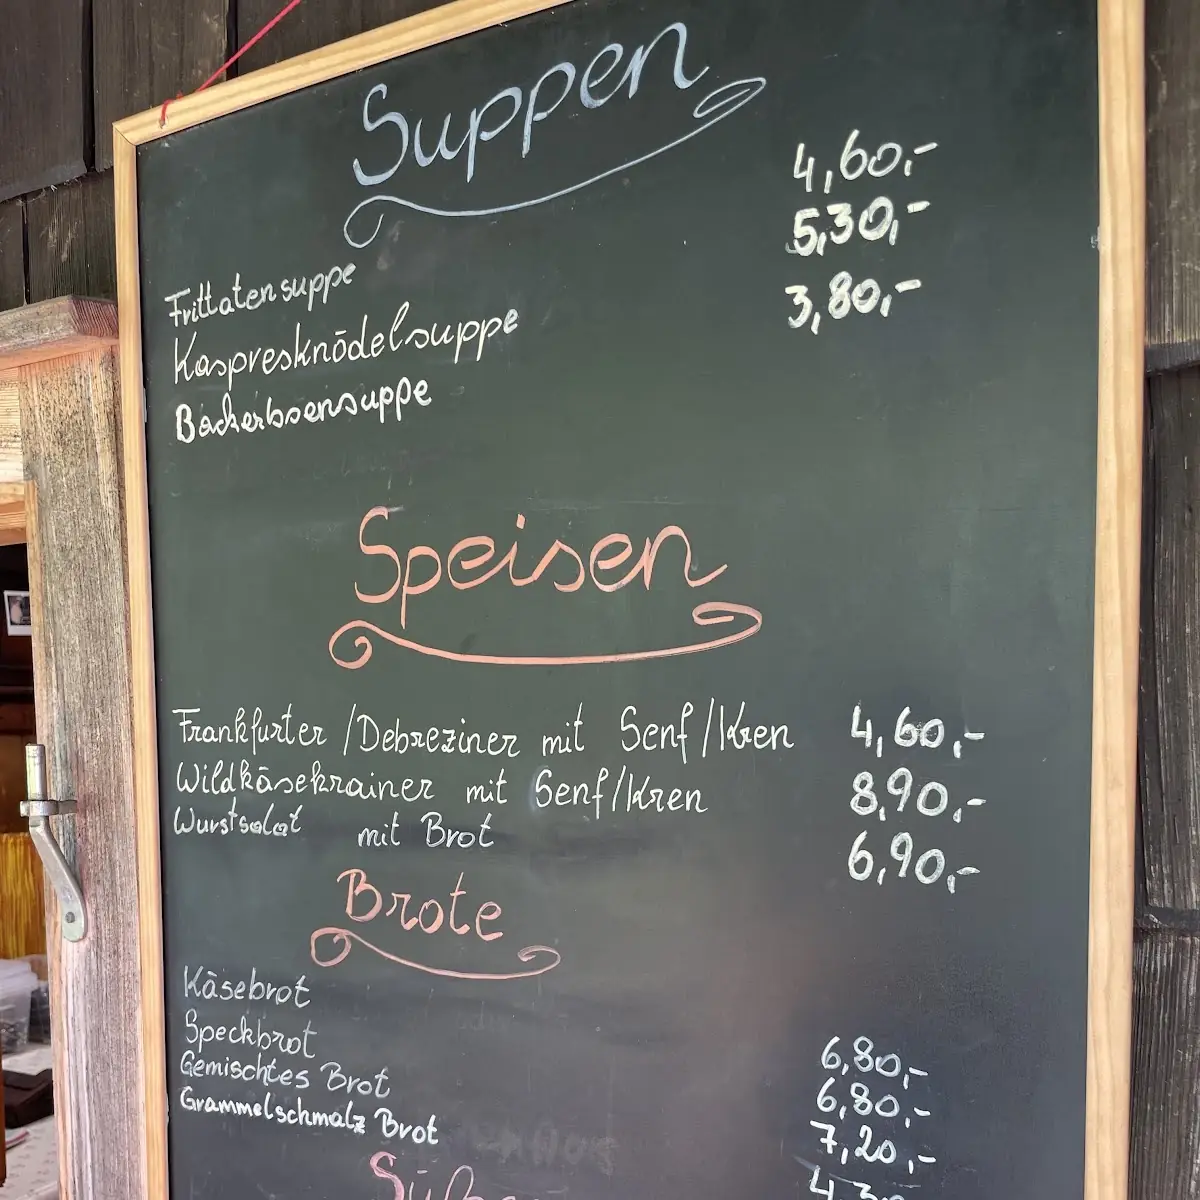 Suppen
Frittatensuppe 4,60,-
Kaspresknödelsuppe 5,30,-
Backerbsensuppe 3,80,-
Speisen
Frankfurter /Debreziner mit Senf/Kren 4,60,-
Wildkäsekrainer mit Senf/Kren 8,90,-
Wurstsalat mit Brot 6,90,-
Brote
Käsebrot 6,80,-
Speckbrot 6,80,-
Gemischtes Brot 7,20,-
Grammelschmalz Brot